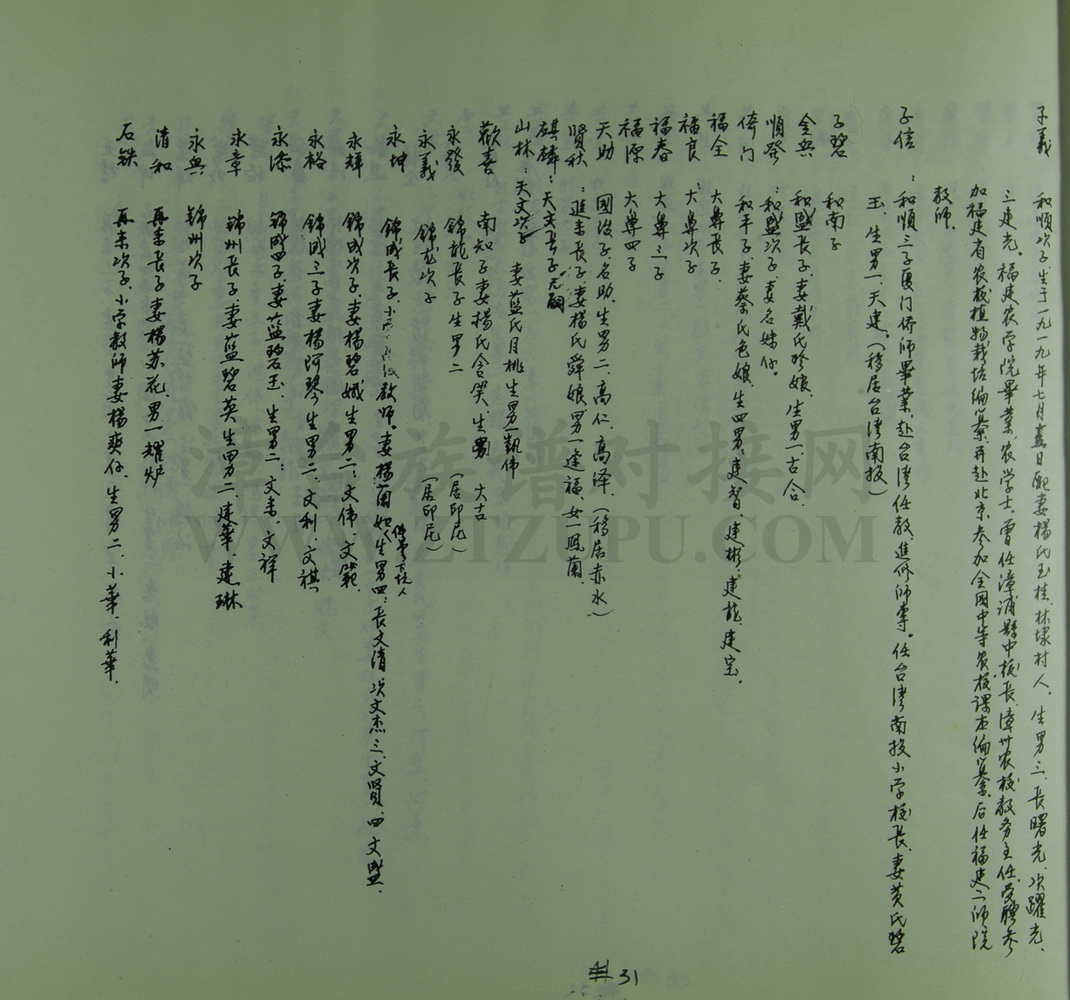 子義 和順次子生于一九一九年七月 日配妻楊氏玉桂.林埭村人.生男三.長曙光.次躍光.
三建光.福建农学院畢業.农学士.曾任漳浦縣中校長.漳州农校教务主任.受聘参
加福建省农校植物栽培编纂.并赴北京.参加全國中等农校課本编纂.后任福建二师院
教师.
子信:和順三子厦门侨师畢業.赴台湾任教.進修师專。任台湾南投小学校長.妻黄氏碧
玉.生男一.天建.(移居台湾南投)
子碧 和南子
金興 和盛長子.妻戴氏珍娘.生男一.古合.
順發:和盛次子.妻名妹仔。
倚门 和平子.妻蔡氏色娘.生四男.建智.建彬.建龍.建宝.
福全 大鼻長子.
福良:大鼻次子
福春 大鼻三子
福源 大鼻四子
天助 國治子.名助.生男二.高仁.高泽.(移居赤水)
賢秋:進吉長子.妻楊氏舜娘.男一逢福.女一鳳蘭
麒麟:天文長子
山林:天文次子 妻藍氏月桃生男一凱伟
歡喜 南知子.妻楊氏含笑.生男 大古
永發 錦龍長子.生男二 (居印尼)
永義 錦龙次子 (居印尼)
永坤 錦成長子.小学 教师.妻楊蘭如.生男四.長文清次文杰三.文賢.四文盛.
永輝 錦成次子.妻楊碧娥生男二:文伟.文範.
永裕 錦成三子.妻楊阿琴生男二.文利.文祺
永添 錦成四子.妻藍碧玉.生男二:文来.文祥
永章 錦州長子.妻藍碧英生男二.建華.建琳
永興 錦州次子
清和 再来長子.妻楊苏花.男一耀炉
石鉄 再来次子.小学教师妻楊爽仔.生男二.小華.利華.
31
漳台族谱对接网
WWW.ZTZUPU.COM